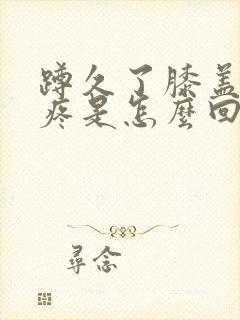 蹲久了膝蓋
疼是怎麼回
尋念